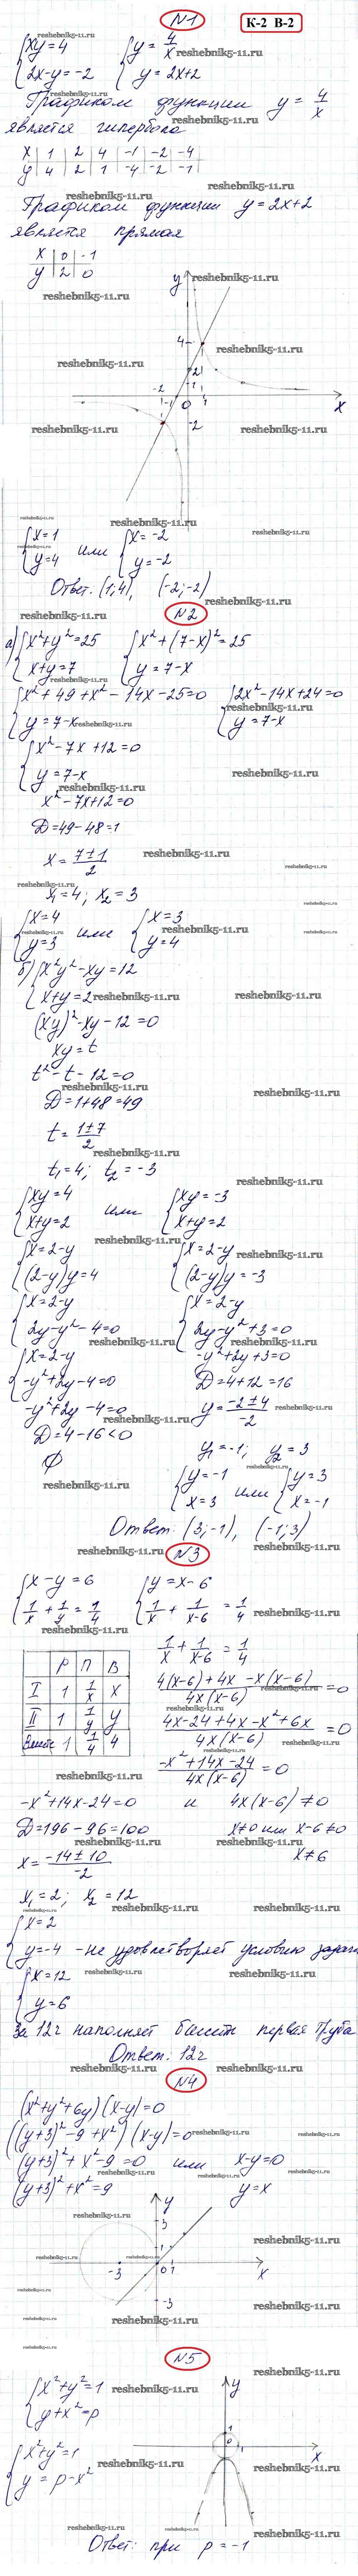 №1
К-2 В-2
{xy=4 {y=4/x
{2x-y=-2 {y=2x+2
Графиком функции y=4/x
является гипербола
x | 1 | 2 | 4 | -1 | -2 | -4
y | 4 | 2 | 1 | -4 | -2 | -1
Графиком функции y=2x+2
является прямая
x | 0 | -1
y | 2 | 0
y
4
2
1
-2 -1 0 1 x
-2
{x=1 или {x=-2
{y=4 {y=-2
Ответ. (1;4), (-2;-2)
№2
а) {x²+y²=25 {x²+(7-x)²=25
{x+y=7 {y=7-x
{x²+49+x²-14x-25=0 {2x²-14x+24=0
{y=7-x {y=7-x
{x²-7x+12=0
{y=7-x
x²-7x+12=0
D=49-48=1
x=(7±1)/2
x₁=4; x₂=3
{x=4 или {x=3
{y=3 {y=4
б) {x²y²-xy=12
{x+y=2
(xy)²-xy-12=0
xy=t
t²-t-12=0
D=1+48=49
t=(1±7)/2
t₁=4; t₂=-3
{xy=4 или {xy=-3
{x+y=2 {x+y=2
{x=2-y {x=2-y
{(2-y)y=4 {(2-y)y=-3
{x=2-y {x=2-y
{2y-y²-4=0 {2y-y²+3=0
{x=2-y -y²+2y+3=0
{-y²+2y-4=0 D=4+12=16
-y²+2y-4=0 y=(-2±4)/-2
D=4-16<0
∅ y₁=-1; y₂=3
{y=-1 или {y=3
{x=3 {x=-1
Ответ: (3;-1), (-1;3)
№3
{x-y=6 {y=x-6
{1/x+1/y=1/4 {1/x+1/(x-6)=1/4
1/x+1/(x-6)=1/4
| | Р | П | В
I | 1 | 1/x | x
II | 1 | 1/y | y
Вместе | 1 | 1/4 | 4
(4(x-6)+4x-x(x-6))/(4x(x-6))=0
(4x-24+4x-x²+6x)/(4x(x-6))=0
(-x²+14x-24)/(4x(x-6))=0
-x²+14x-24=0 и 4x(x-6)≠0
D=196-96=100 x≠0 или x-6≠0
x=(-14±10)/-2 x≠6
x₁=2; x₂=12
{x=2
{y=-4 - не удовлетворяет условию задачи
{x=12
{y=6
За 12ч наполняет бассейн первая труба
Ответ: 12ч
№4
(x²+y²+6y)(x-y)=0
((y+3)²-9+x²)(x-y)=0
(y+3)²+x²-9=0 или x-y=0
(y+3)²+x²=9 y=x
y
3
1
-3 0 1 x
-3
№5
{x²+y²=1
{y+x²=p
{x²+y²=1
{y=p-x²
y
1
0 1 x
Ответ: при p=-1
reshebnik5-11.ru